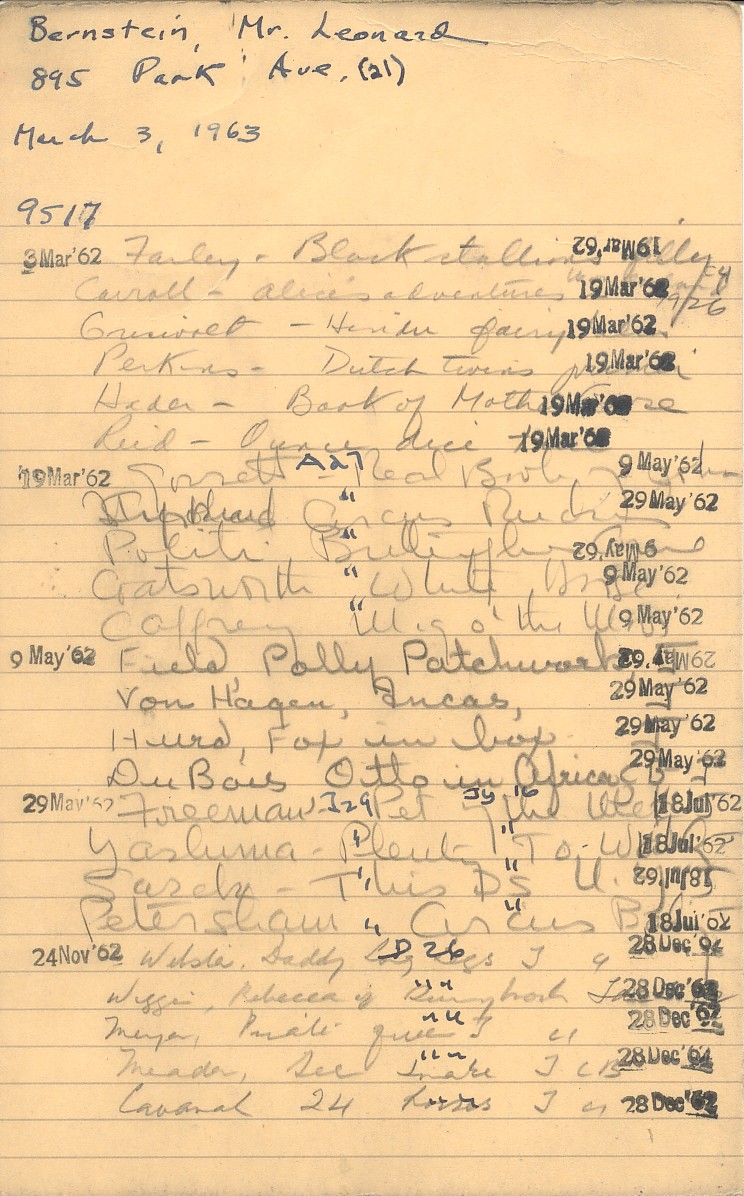 Bernstein, Mr. Leonard
895 Park Ave. (21)
March 3, 1963
9517
3 Mar '62 Farley - Black stallion's filly 19 Mar '62
Carroll - Alice's adventures 19 Mar '62
- Hindu fairy 19 Mar '62
Perkins - Dutch twins 19 Mar '62
Hader - Book of Mother Goose 19 Mar '62
Reid - Ounce dice 19 Mar '62
19 Mar '62 - Real Book 9 May '62
Circus 29 May '62
Politi, 9 May '62
Coatsworth " White Horse 9 May '62
Caffrey " Mig o' the Moor 9 May '62
9 May '62 Field, Polly Patchwork 29 May '62
Von Hagen, Incas, 29 May '62
Hurd, Fox in box 29 May '62
Du Bois Otto in Africa 29 May '62
29 May '62 Freeman - Pet of the Met 18 Jul '62
Yashima - Plenty To Watch 18 Jul '62
- This Is 18 Jul '62
Petersham " Circus 18 Jul '62
24 Nov '62 Webster, Daddy Long Legs J 28 Dec '62
Wiggin, Rebecca of Sunnybrook 28 Dec '62
Meyer, Pirate queen J 28 Dec '62
Meader, Snake J 28 Dec '62
Cavanah 24 horses J 28 Dec '62